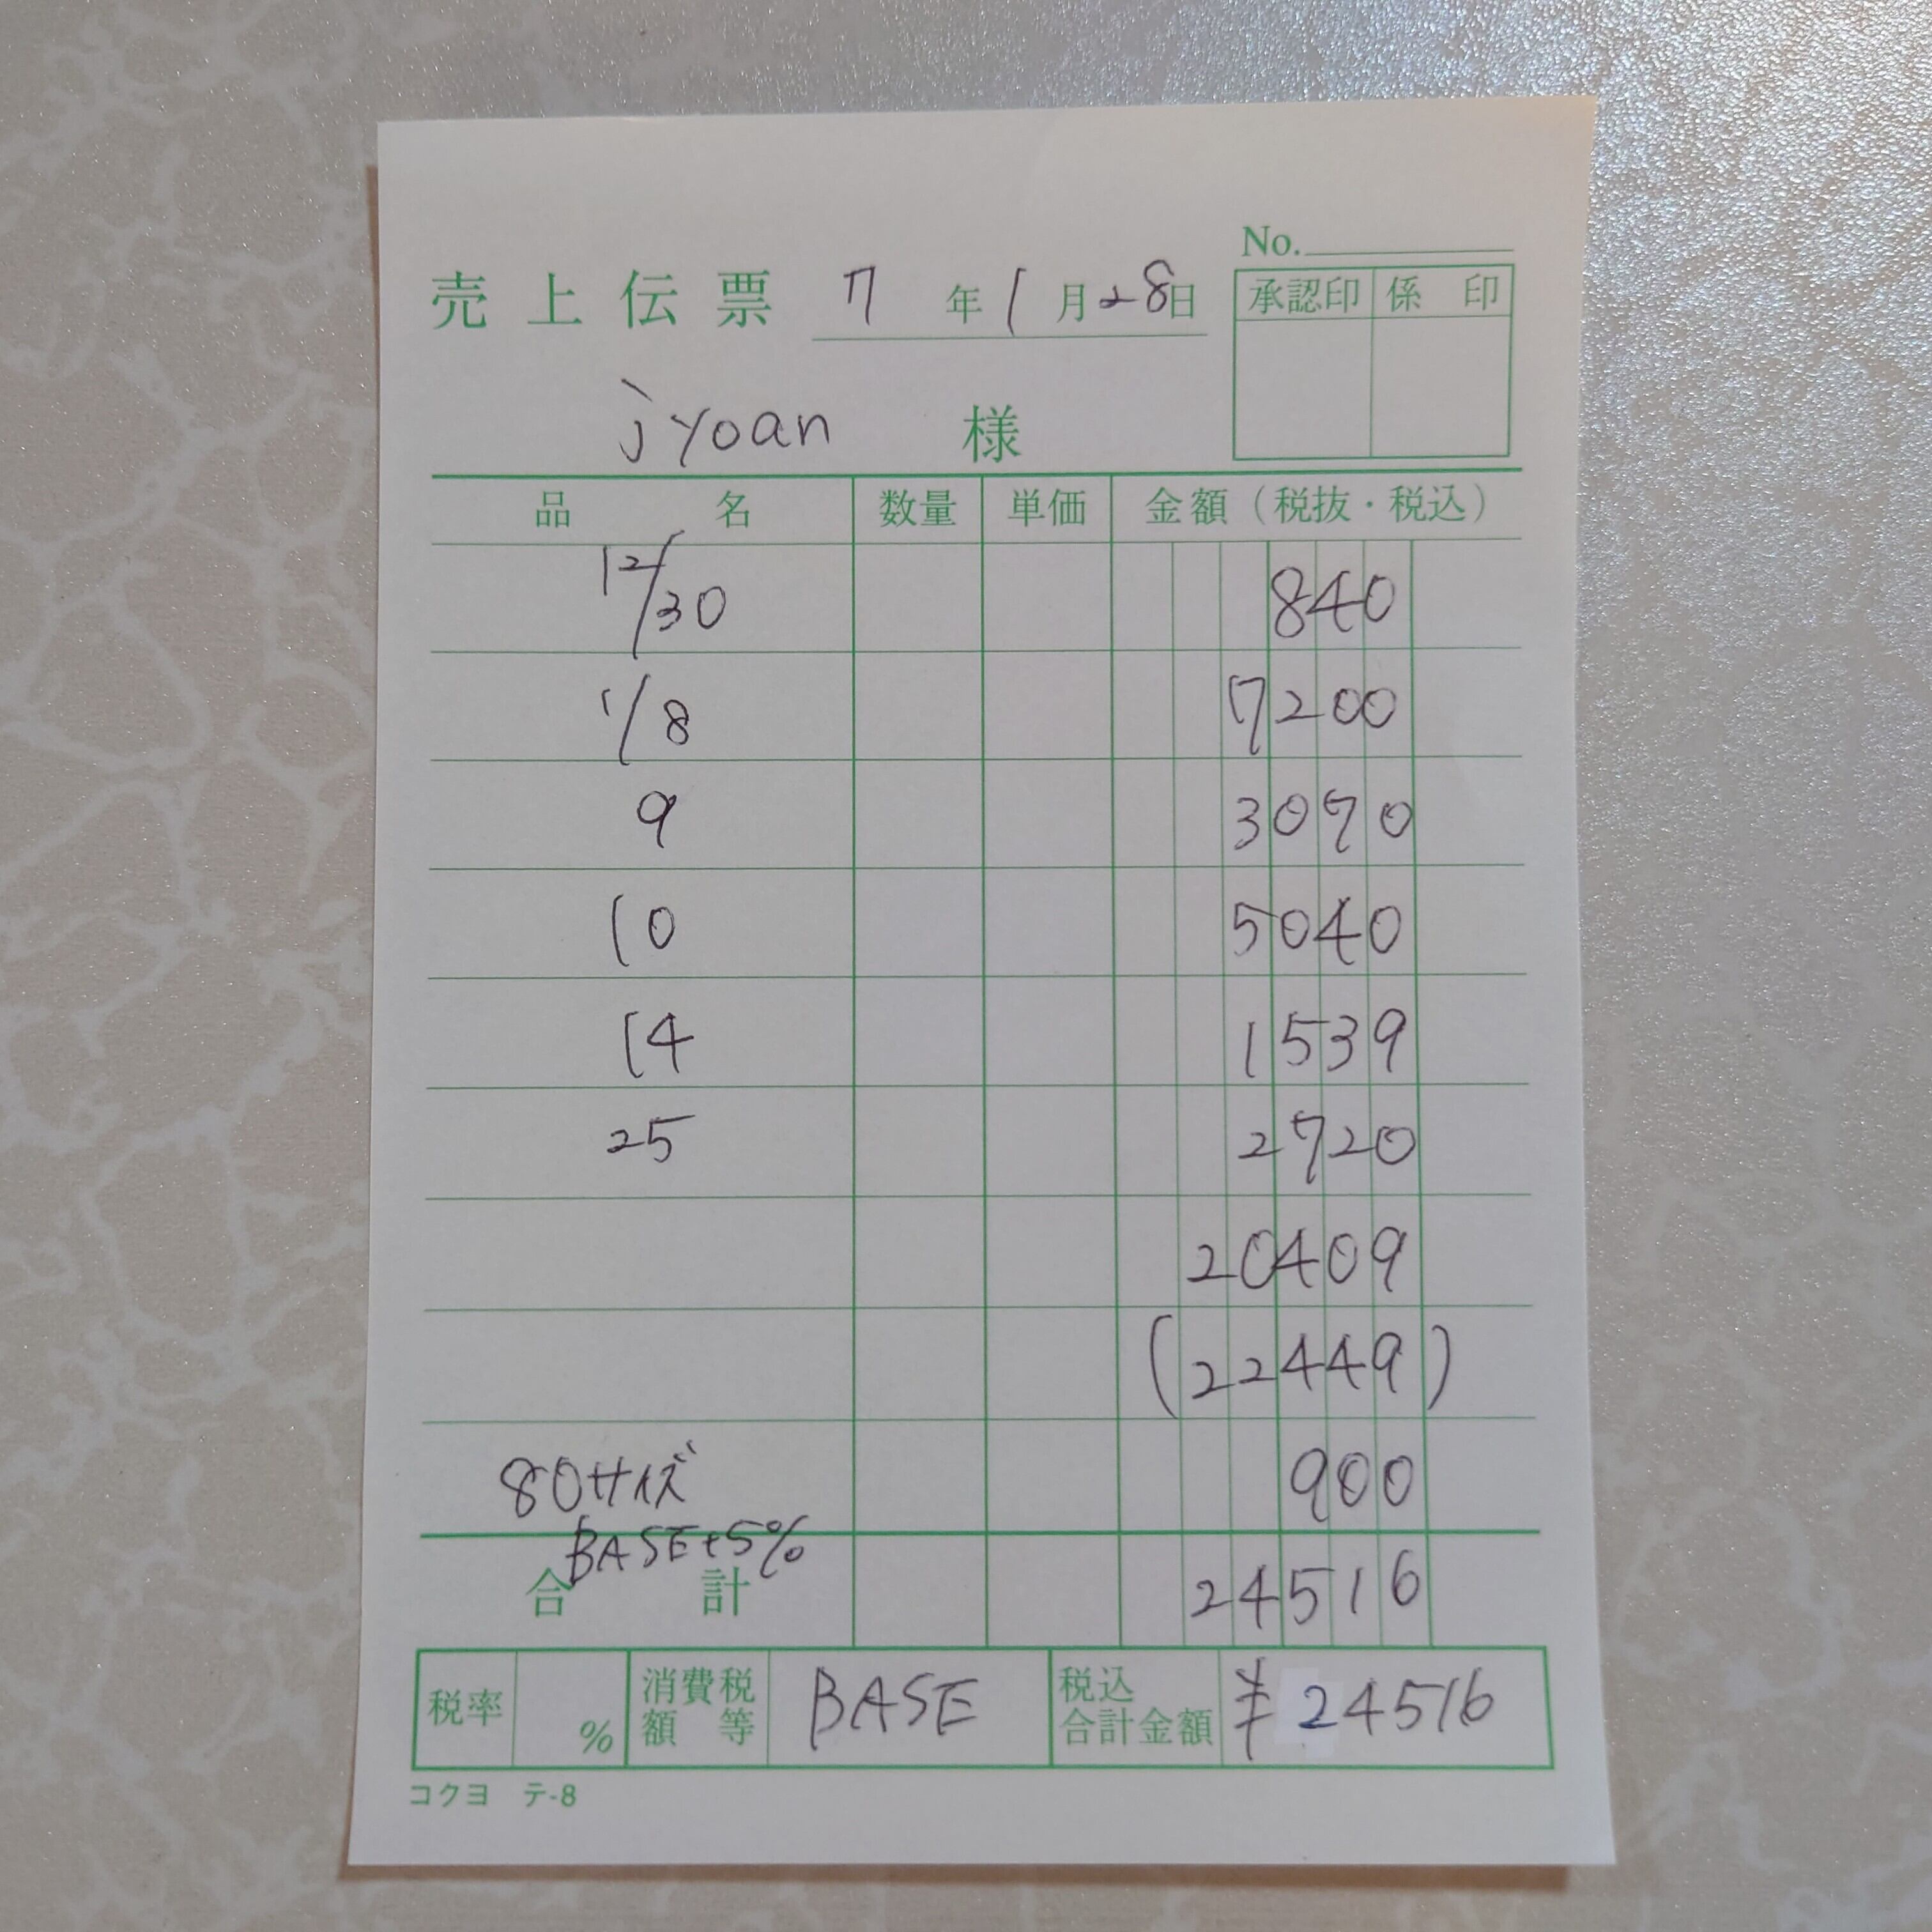 No.
売上伝票 7年1月28日
承認印 係印
jyoan 様
品名 数量 単価 金額（税抜・税込）
12/30 840
1/8 7200
9 3070
10 5040
14 1539
25 2720
20409
(22449)
80サイズ 900
BASE+5%
合計 24516
税率 % 消費税額等 BASE 税込合計金額 ¥24516
コクヨ テ-8